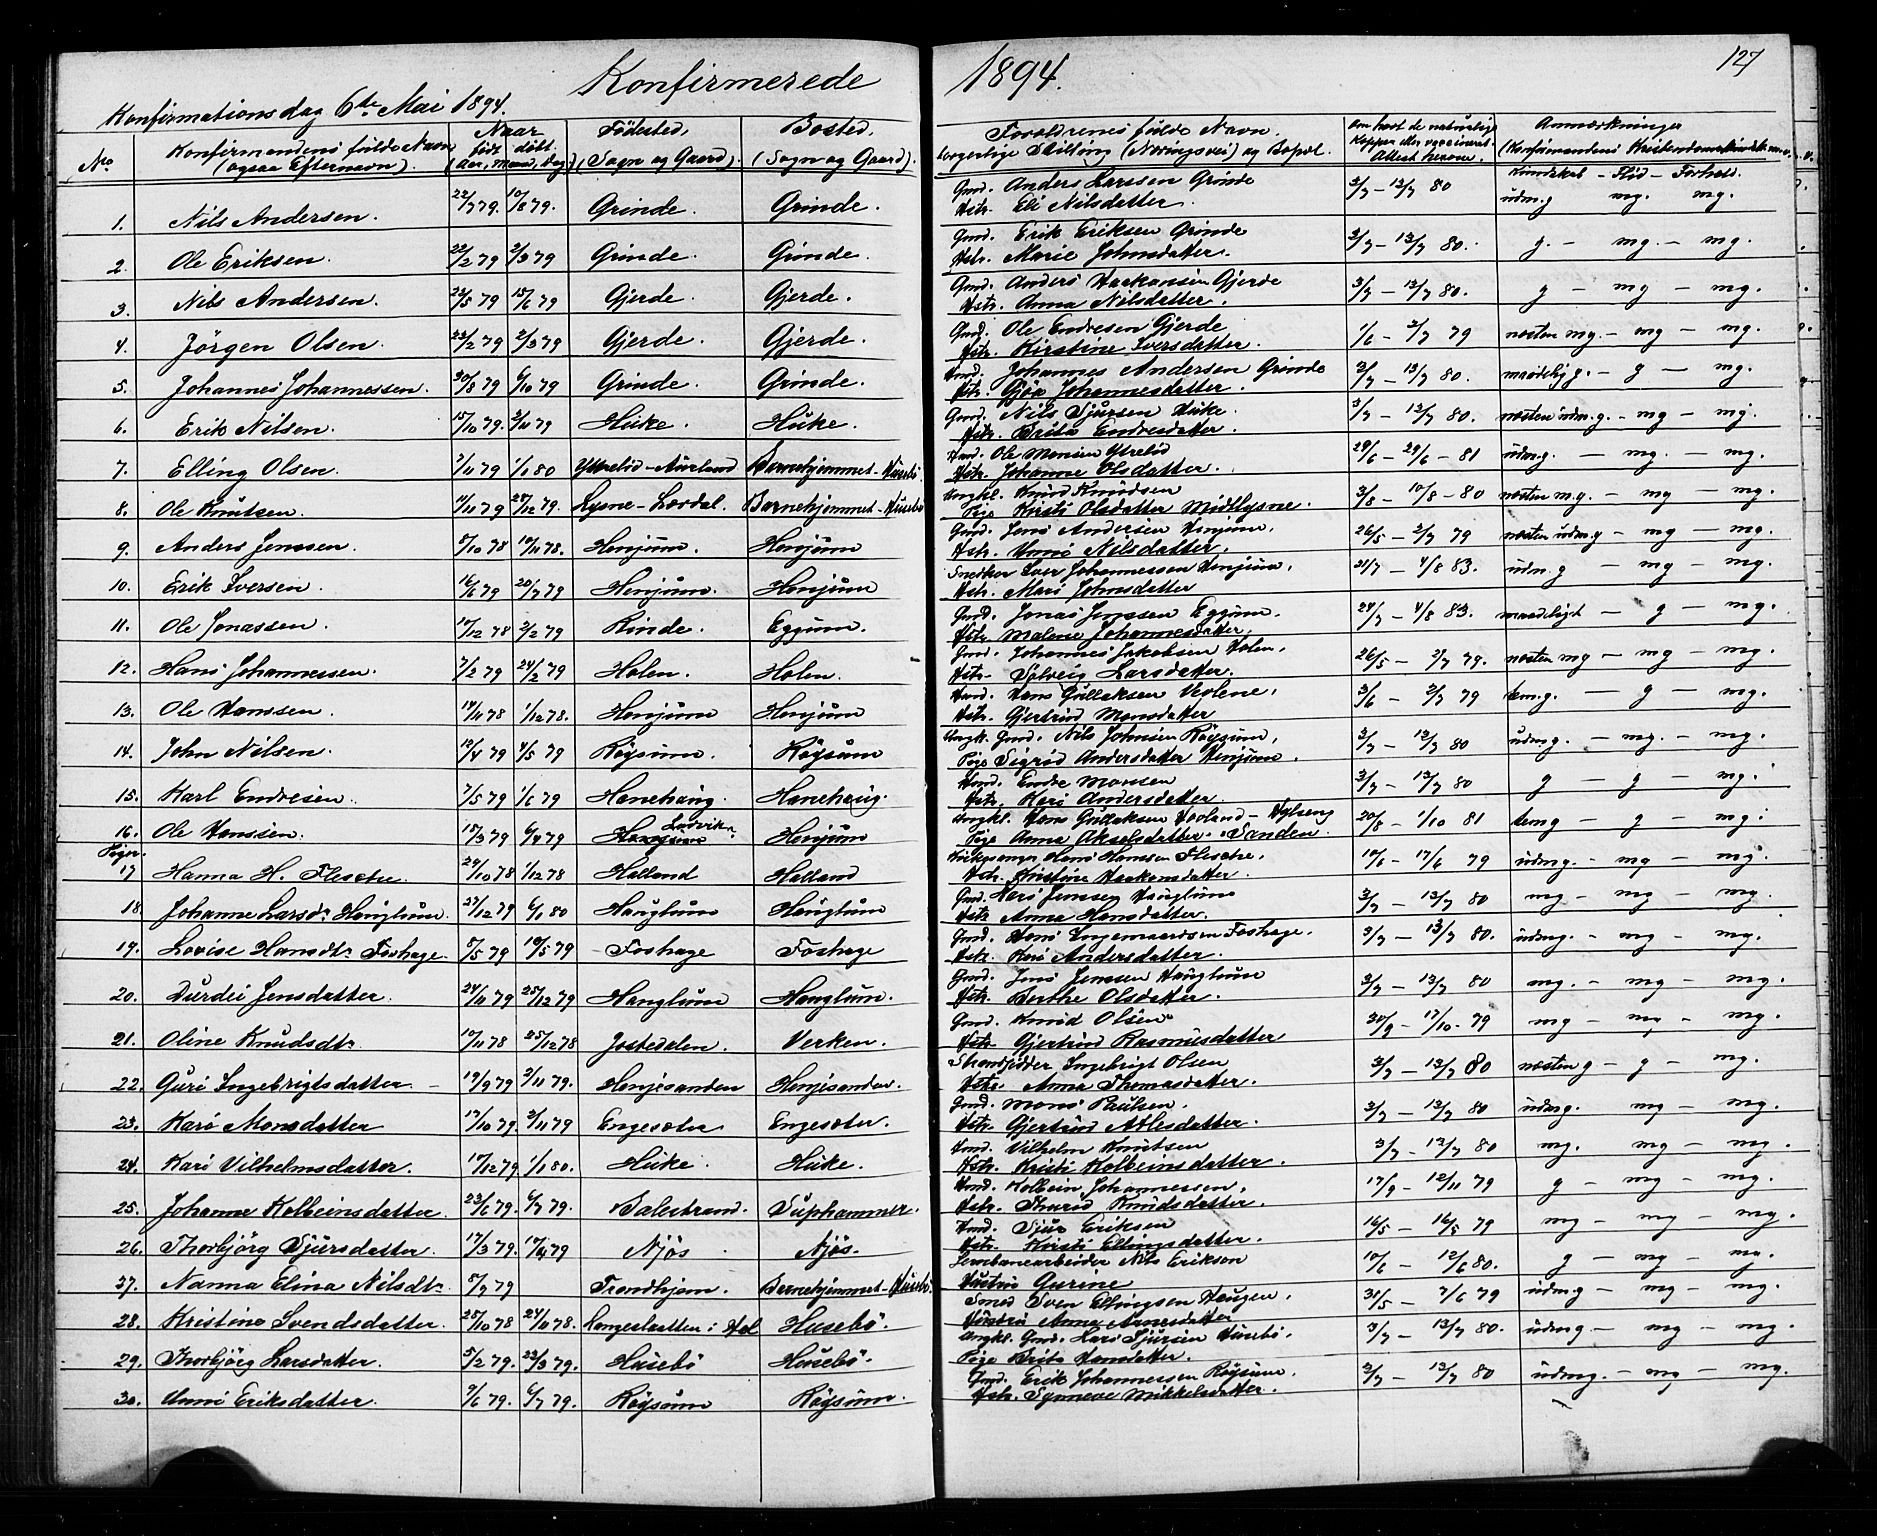 Konfirmerede 1894. 127
Konfirmationsdag 6te Mai 1894.
No. Konfirmandens fulde Navn (ogsaa Efternavn). Naar født døbt (Aar, Maan, Dag) Fødested, (Sogn og Gaard). Bosted, (Sogn og Gaard). Forældrenes fulde Navn, borgerlige Stilling (Næringsvei) og Bopæl. Om havt de naturlige Kopper eller vaccineret. Attest herom. Anmærkninger (Konfirmandens Kristendomskundskab
Kundskab - Flid - Forhold.
1. Nils Andersen. 22/7 79. 10/8 79. Grinde. Grinde. Gmd. Anders Larssen Grinde 3/7 - 13/7 80 udm.g mg. mg.
Hstr. Eli Nilsdatter.
2. Ole Eriksen. 22/2 79 2/3 79 Grinde. Grinde. Gmd. Erik Eriksen Grinde 3/7 - 13/7 80. g. - mg. - mg.
Hstr. Marie Johnsdatter.
3. Nils Andersen 22/5 79 15/6 79 Gjerde. Gjerde. Gmd. Anders Haakonsen Gjerde 3/7 - 13/7 80. g - mg - mg.
Hstr. Anna Nilsdatter.
4. Jörgen Olsen. 23/2 79 2/3 79 Gjerde. Gjerde. Gmd. Ole Endresen Gjerde 1/6 - 2/7 79 næsten mg. - mg - mg.
Hstr. Kirstine Iversdatter.
5. Johannes Johannessen. 30/8 79 6/10 79 Grinde. Grinde. Hmd. Johannes Andersen Grinde 3/7 - 13/7 80. maadelig g. - g - mg.
Hstr. Gjöa Johannesdatter.
6. Erik Nilsen. 15/10 79. 2/11 79 Huke. Huke. Gmd. Nils Sjursen Huke. 3/7 - 13/7 80. næsten udm.g. - mg - mg.
Hstr. Brita Endresdatter.
7. Elling Olsen. 7/11 79 1/1 80 Yttrelid - Aurland Barnehjemmet - Husebö Hmd. Ole Monsen Ytrelid 29/6 - 29/6 - 81 udm.g. - mg. - mg.
Hstr. Johanne Olsdatter.
8. Ole Knutsen. 11/11 79 28/12 79. Lysne - Lærdal. Barnehjemmet - Husebö Ungkl. Knud Knudsen 3/8 - 10/8 - 80 næsten m.g. - mg - mg.
Pige Kirsti Olsdatter Midtlysne.
9. Anders Jenssen. 5/10 78 10/11 78. Henjum. Henjum Gmd. Jens Andersen Henjum. 26/5 - 2/7 79 næsten udm.g - mg - mg.
Hstr. Anna Nilsdatter.
10. Erik Iversen. 16/6 79 20/7 79 Henjum. Henjum Snedker Iver Johannessen Henjum. 21/7 - 4/8 83. udm.g - mg - mg.
Hstr. Mari Johnsdatter
11. Ole Jonassen. 10/12 78 2/2 79 Rinde. Eggum. Gmd. Jonas Jenssen Eggum. 24/7 - 4/8 83. maadeligt - g - mg.
Hstr. Malene Johannesdatter.
12. Hans Johannessen. 7/2 79 24/2 79 Holen. Holen. Gmd. Johannes Jakobsen Holen. 26/5 - 2/7 79. næsten mg - mg - mg.
Hstr. Sölveig Larsdatter.
13. Ole Hanssen. 14/11 78 1/12 78. Henjum Henjum Hmd. Hans Gullaksen Veslene. 3/6 - 2/7 79 tem.g. - g - mg.
Hstr. Gjertrud Monsdatter
14. John Nilsen. 13/4 79 4/5 79 Röysum. Röysum Ungk. Gmd. Nils Johnsen Röysum. 3/7 - 13/7 80 udmg. - mg. - mg.
Pige Sigrid Andersdatter Henjum.
15. Karl Endresen. 7/5 79 1/6 79 Hanehaug. Hanehaug. Hmd. Endre Monsen 3/7 - 13/7 80 g - g - mg.
Hstr. Kari Andersdatter.
16. Ole Hanssen. 15/3 79 6/4 79 Henjum Ledvik Henjum Ungkl. Hans Gullaksen Hovland - Nybveg 20/8 - 1/10 81 temg - g - mg.
Pige Anna Akselsdatter Sanden.
Piger.
17 Hanna H. Flesche. 29/10 78 1/12 78 Halland Halland Kirkesanger Hans Hanssen Flesche. 10/6 - 17/6 79 udmg. - mg - mg.
Hstr. Kristine Haakonsdatter.
18. Johanne Larsdr Hauglum. 27/12 79 6/1 80 Hauglum Hauglum Gmd. Lars Jenssen Hauglum 3/7 - 13/7 80 mg - mg - mg.
Hstr. Anna Hansdatter.
19. Lovise Hansdtr Foshage. 5/5 79 10/5 79 Foshage Foshage Gmd. Hans Ingemardsen Foshage. 3/7 - 13/7 80. udmg. - mg - mg.
Hstr. Kari Andersdatter.
20. Durdei Jensdatter. 24/11 79 25/12 79 Hauglum Hauglum. Gmd. Jens Jenssen Hauglum 3/7 - 13/7 80 mg. - mg - mg.
Hstr. Berthe Olsdatter.
21. Oline Knudsdtr 10/11 78 25/12 78 Jostedalen. Verken. Gmd. Knud Olsen 30/9 - 17/10 - 79 mg - mg - mg.
Hstr. Gjertrud Rasmusdatter
22. Guri Ingebrigtsdatter. 19/9 79 2/11 79. Henjesanden Henjesanden. Strandsidder Ingebrigt Olsen 3/7 - 13/7 80 næsten g - g - mg.
Hstr. Anna Thomasdatter.
23. Kari Monsdatter 17/10 79. 2/11 79 Engesæter Engesæter. Gmd. Mons Paulsen. 3/7 - 13/7 80 udmg. mg - mg.
Hstr. Gjertrud Atlesdatter.
24. Kari Vilhelmsdatter. 17/12 79 1/1 80. Huke. Huke. Hmd. Vilhelm Knutsen 3/7 - 13/7 80 mg. mg - mg.
Hstr. Kristi Kolbeinsdatter.
25. Johanne Kolbeinsdatter. 23/6 79. 6/7 79. Balestrand. Suphammer. Hmd. Kolbein Johannessen. 17/9 - 12/11 79 g - mg - mg.
Hstr. Thurid Knudsdatter.
26. Thorbjörg Sjursdatter. 17/3 79. 17/4 79 Njös. Njös. Hmd. Sjur Eriksen 16/5 - 16/5 79 mg - mg - mg.
Hstr. Kirsti Ellingsdatter.
27. Nanna Elina Nilsdtr. 5/7 79 Trondhjem. Barnehjemmet - Husebö. Jernbanearbeider Nils Eriksen 10/6 - 12/6 80. g - mg - mg.
Hustru Gurine
28. Kristine Svendsdatter. 25/10 78 24/11 78. Langeslætten i Hol Husebö. Smed Sven Ellingsen Haugen. 31/5 - 7/6 79 udm.g - mg - mg.
Hustru Anna Arnesdatter
29. Thorbjörg Larsdatter. 5/2 79. 23/3 79. Husebö Husebö. Ungkl. Gmd. Lars Sjursen Husebö. 3/7 - 13/7 80. udmg. - mg - mg.
Pige Brita Hansdatter.
30. Anna Eriksdatter. 7/6 79. 6/7 79. Röysum Röysum. Gmd. Erik Johannessen Röysum. 3/7 - 13/7 80 udmg. - mg - mg.
Hstr. Synneve Mikkelsdatter.